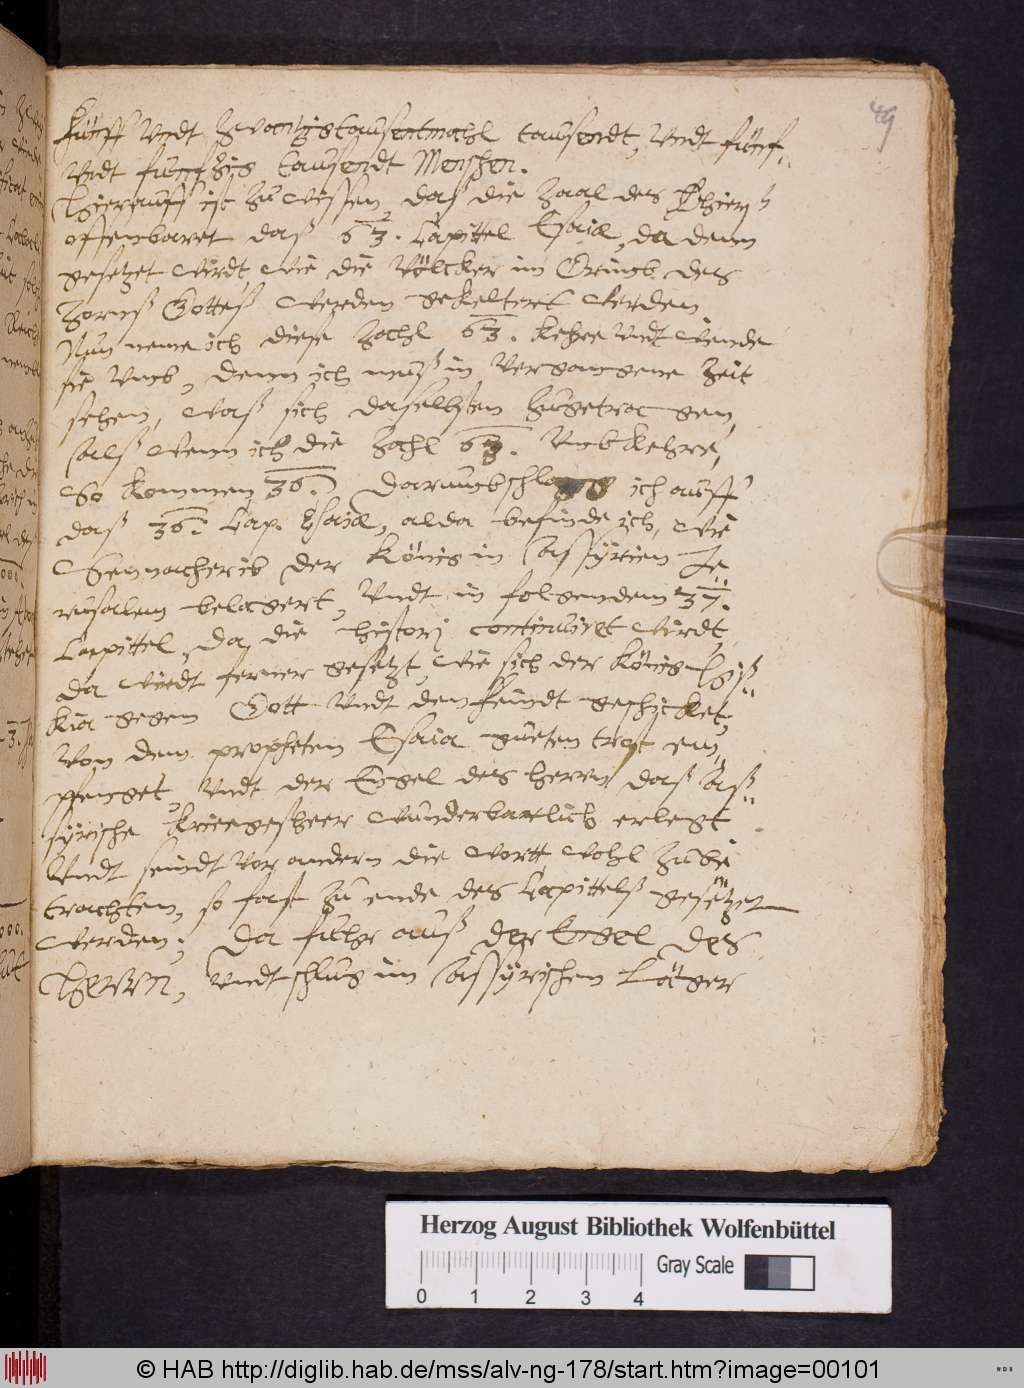 49
fünff Vndt Zwantzigtausentmahl tausendt, Vndt fünf„
Vndt funfftzig tausendt Menschen.
Hierauff ist zu Wissen daß die Zaal des Thiers
offenbaret daß 63. Capittel Esaiæ, da denn
gesetzet Wirdt, Wie die Völcker im Grimb des
Zornß Gotteß Werden gekeltert Werden
Nun neme ich diese Zahl 63. kehre Vndt Wende
sie Vmb, denn ich muß in Vergangene Zeit
sehen, Waß sich daselbsten Zugetragen,
Alß Wenn ich die Zahl 63. Vmbkehre,
So kommen 36. Darumb schlage ich auff
daß 36. Cap. Esaiæ, alda befinde ich, Wie
Sennacherib der König in Assÿrien Je
rusalem belagert, Vndt in folgendem 37.
Capittel, da die histori continuiret Wirdt,
da Wirdt ferner gesetzt, Wie sich der König Hiß„
kia gegen Gott Vndt den feindt geschicket,
Von dem propheten Esaia gueten trost em„
pfenget, Vndt der Engel des Herrn daß Aß„
sÿrische Kriegesheer Wunderbarlich erlegt
Vndt seindt Vor andern die Wortt Wohl Zu be
trachten, so fast zu ende des Capittelß gesetzet
Werden; Da fuhr auß der Engel des
HERRN, Vndt schlug im Assÿrischen Läger
Herzog August Bibliothek Wolfenbüttel
Gray Scale
0 1 2 3 4
© HAB http://diglib.hab.de/mss/alv-ng-178/start.htm?image=00101